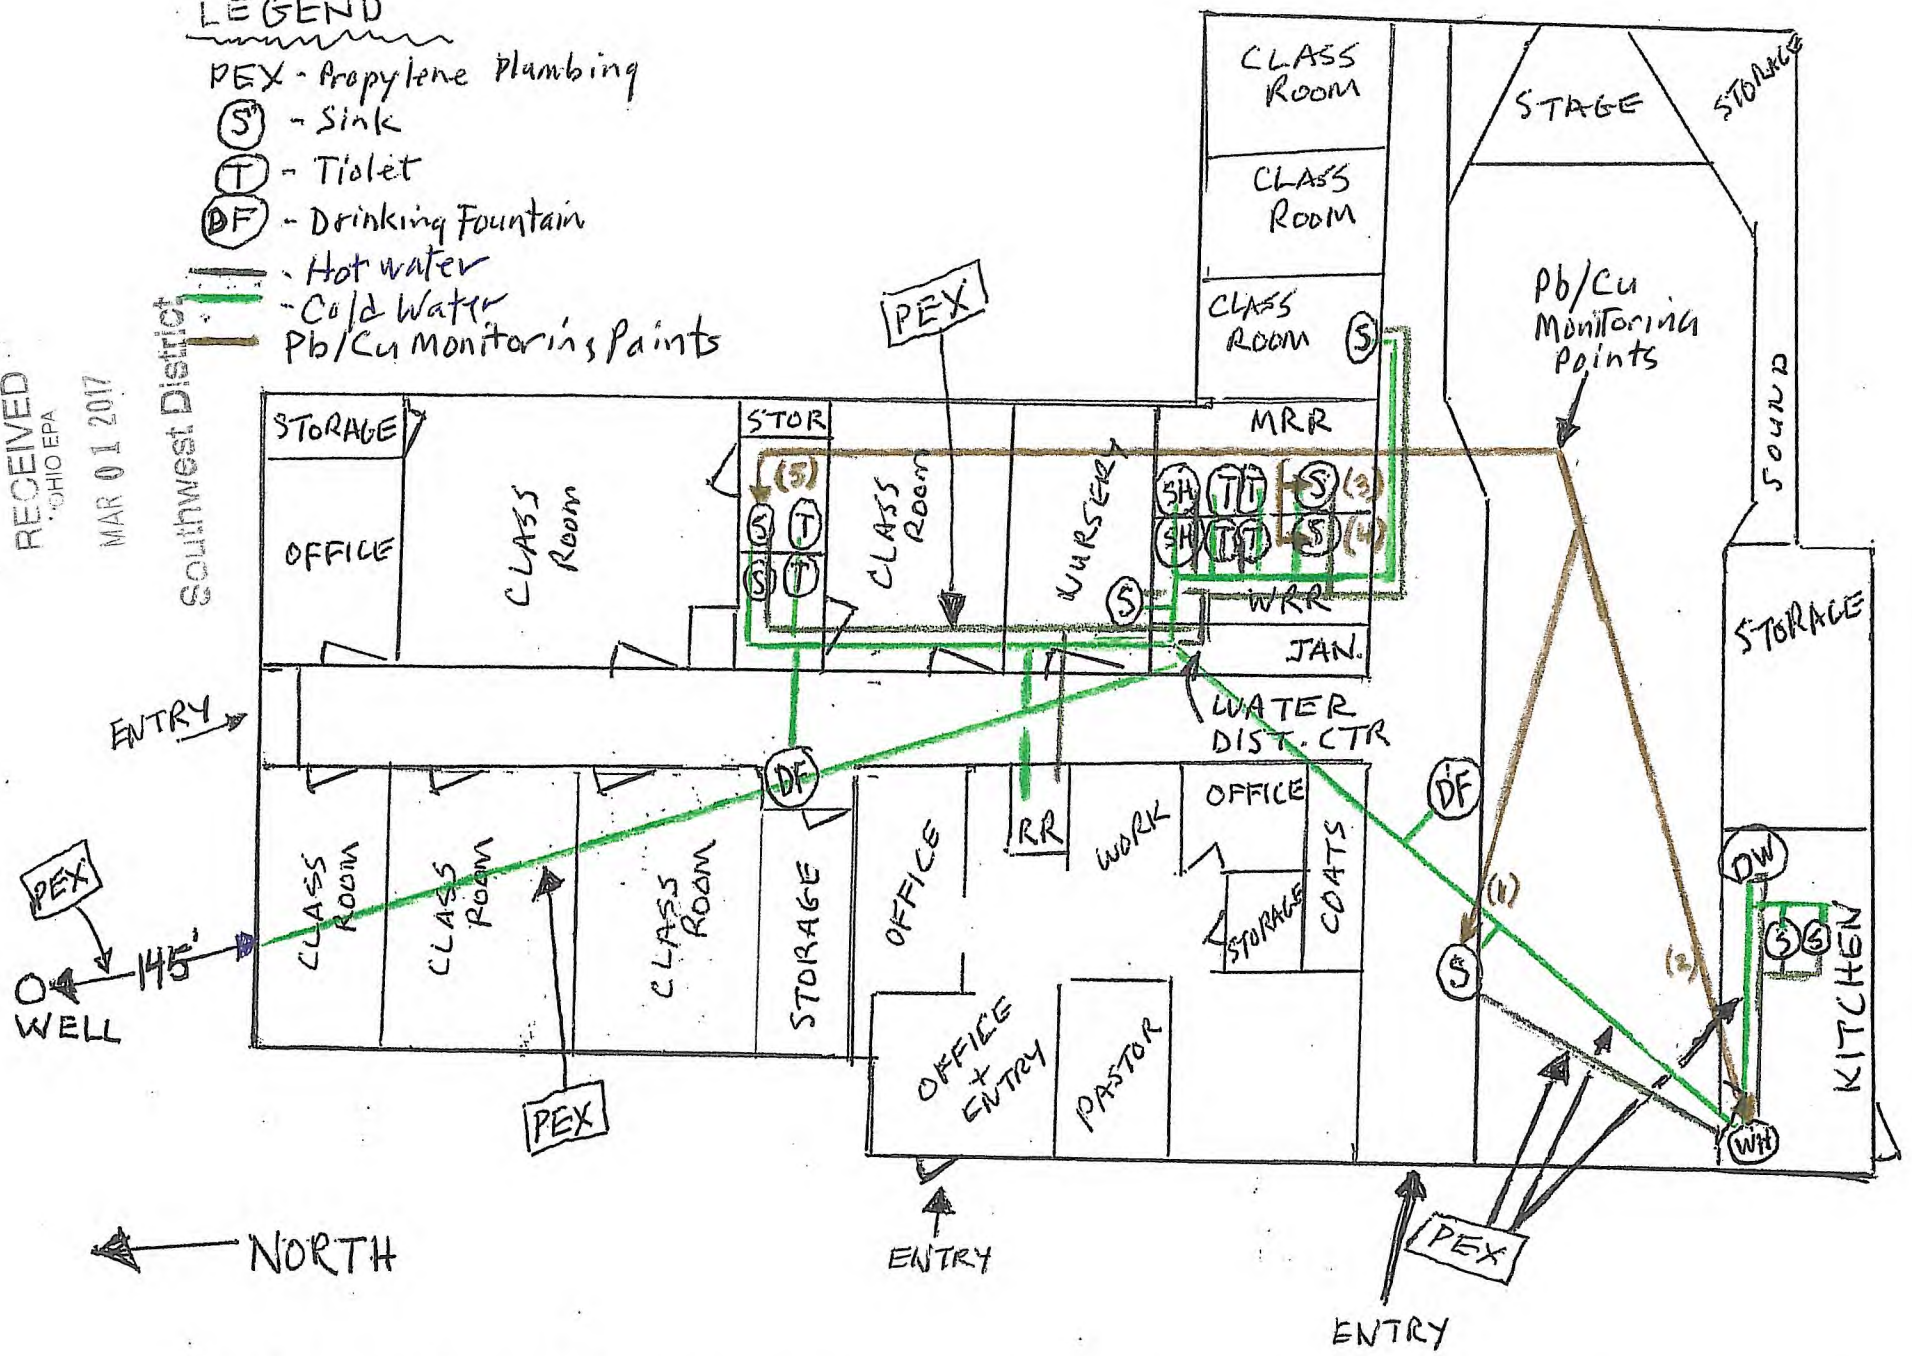 LEGEND
PEX - Propylene Plumbing
S - Sink
T - Tiolet
DF - Drinking Fountain
- Hot water
- Cold Water
Pb/Cu Monitoring Points
RECEIVED
OHIO EPA
MAR 01 2017
Southwest District
CLASS
ROOM
CLASS
ROOM
CLASS
ROOM
S
STAGE
STORAGE
Pb/Cu
Monitoring
Points
SOUND
PEX
STORAGE
OFFICE
CLASS
ROOM
STOR
(5)
S T
S T
CLASS
ROOM
NURSERY
S
MRR
SH T T S (3)
SH T T S (4)
WRR
JAN.
STORAGE
ENTRY
WATER
DIST. CTR
DF
DF
PEX
145'
WELL
CLASS
ROOM
CLASS
ROOM
CLASS
ROOM
STORAGE
OFFICE
RR
WORK
OFFICE
STORAGE
COATS
(1)
S
(2)
DW
S S
KITCHEN
WH
OFFICE
+
ENTRY
PASTOR
PEX
PEX
NORTH
ENTRY
ENTRY